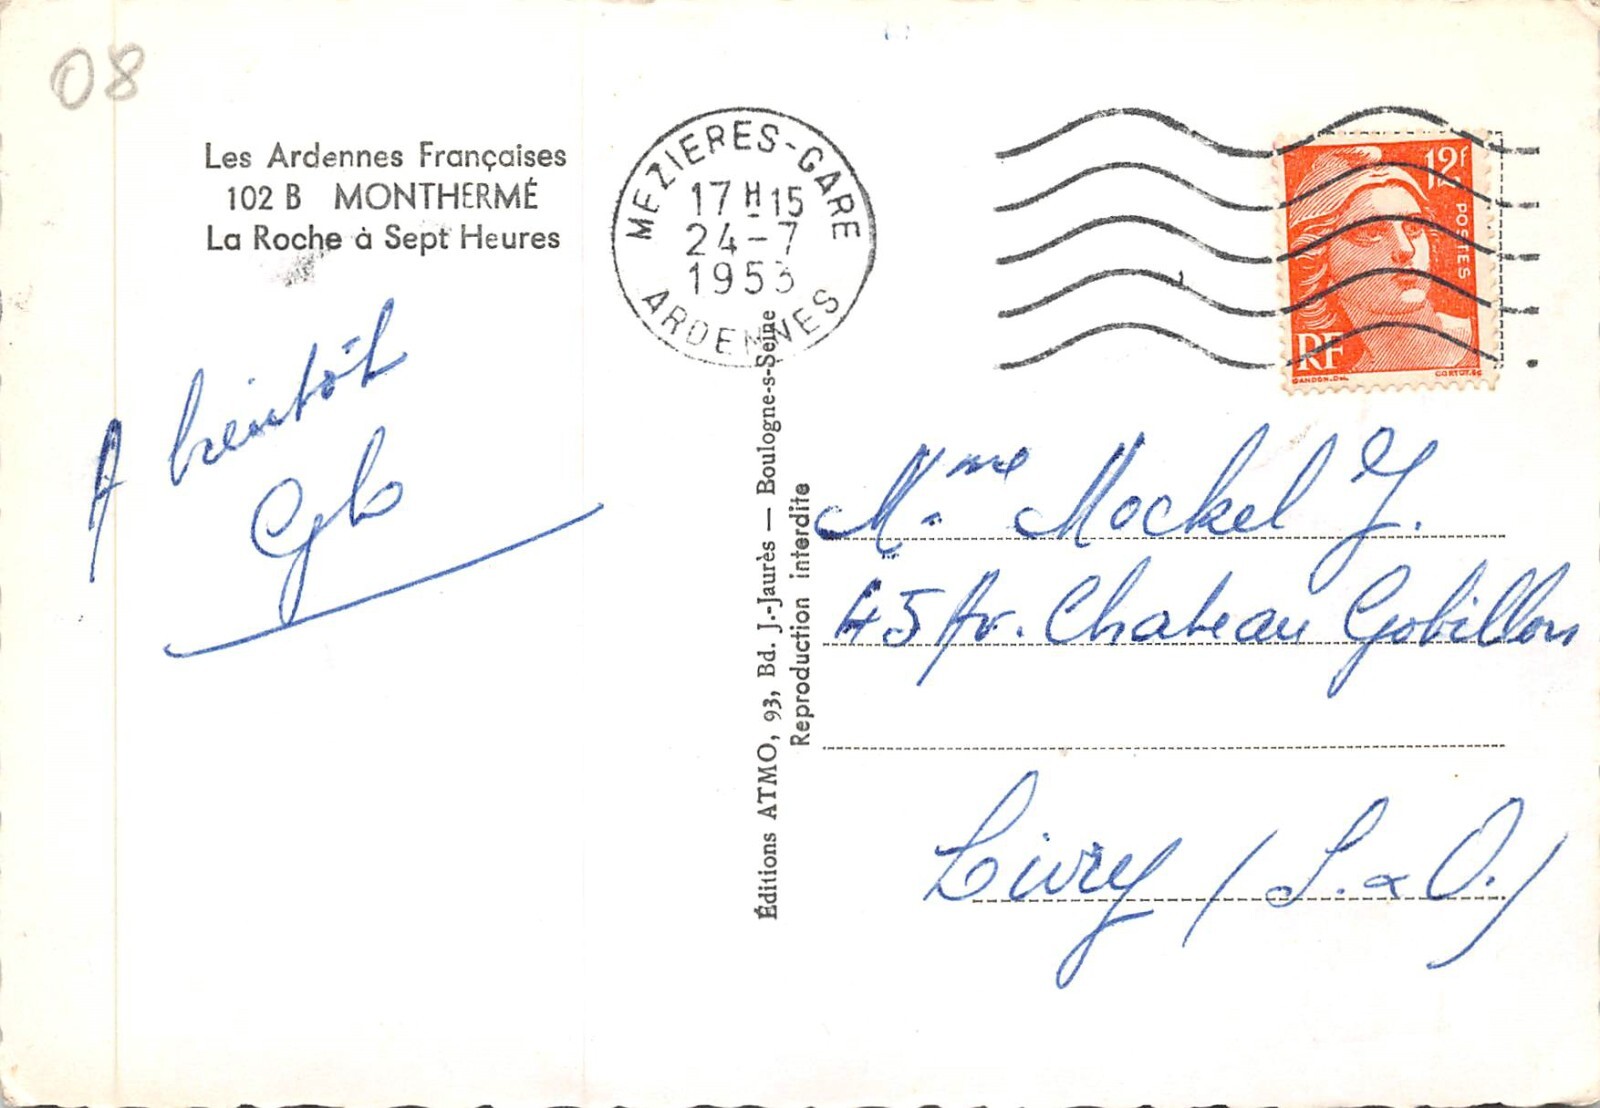 08
Les Ardennes Françaises
102 B MONTHERMÉ
La Roche à Sept Heures
A bientôt
Glo
MEZIERES-GARE
17 H 15
24-7
1953
ARDENNES
12F
POSTES
RF
GANDON.DEL.
CORTOT.SC
Éditions ATMO, 93, Bd. J.-Jaurès — Boulogne-s-Seine
Reproduction interdite
Mme Mockel Y.
45 Av. Chateau Gobillon
Livry (S. & O.)